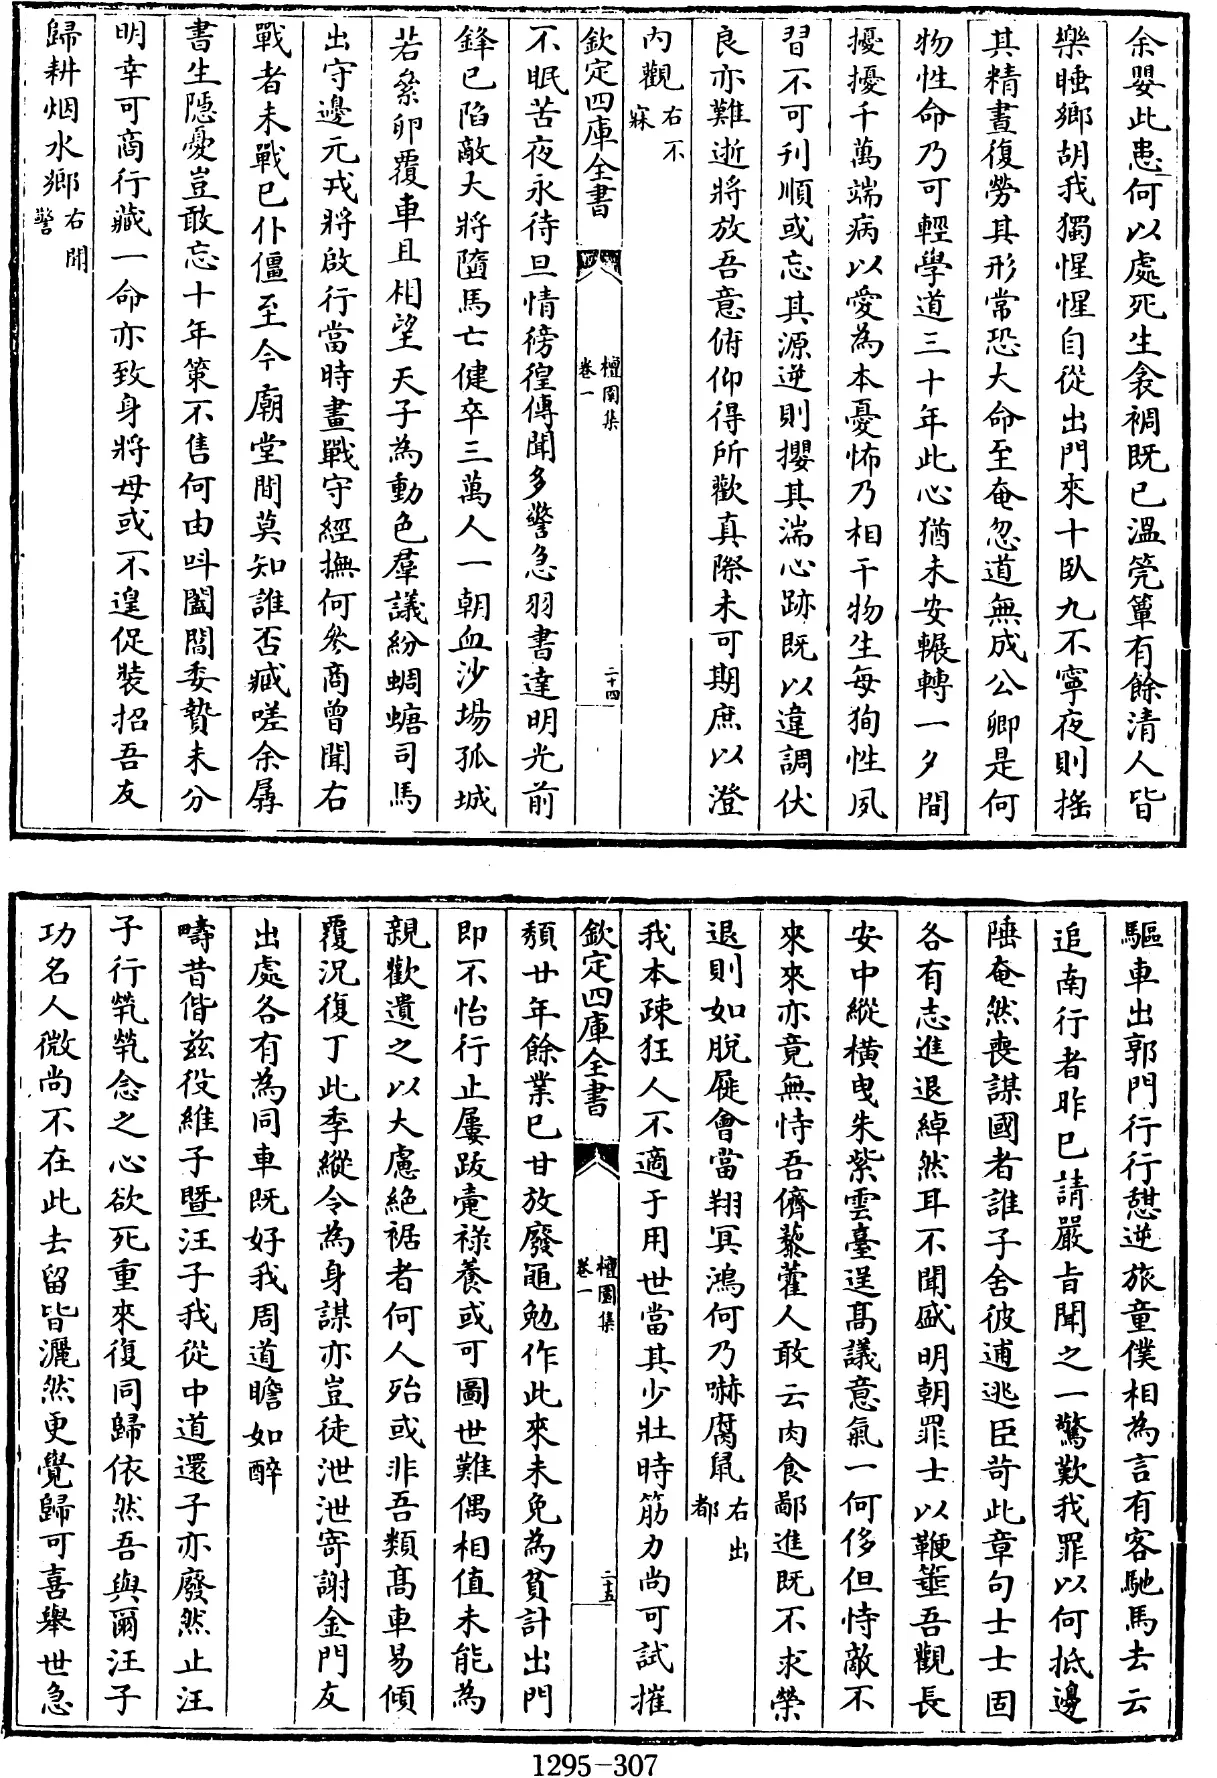 余嬰此患何以處死生衾裯既已溫筦簟有餘清人皆
樂睡鄉胡我獨惺惺自從出門來十臥九不寧夜則搖
其精晝復勞其形常恐大命至奄忽道無成公卿是何
物性命乃可輕學道三十年此心猶未安輾轉一夕間
擾擾千萬端病以愛為本憂怖乃相干物生每狥性夙
習不可刋順或忘其源逆則攖其湍心跡既以違調伏
良亦難逝將放吾意俯仰得所歡真際未可期庶以澄
內觀右不寐
欽定四庫全書
檀園集
卷一
二十四
不眠苦夜永待旦情徬徨傳聞多警急羽書達明光前
鋒已陷敵大將隨馬亡健卒三萬人一朝血沙場孤城
若絫卵覆車且相望天子為動色羣議紛蜩螗司馬
出守邊元戎將啟行當時畫戰守經撫何參商曾聞右
戰者未戰已仆僵至今廟堂間莫知誰否臧嗟余孱
書生隱憂豈敢忘十年策不售何由叫闔閭委贄未分
明幸可商行藏一命亦致身將母或不遑促裝招吾友
歸耕烟水鄉右聞警
驅車出郭門行行憇逆旅童僕相為言有客馳馬去云
追南行者昨已請嚴旨聞之一驚歎我罪以何抵邊
陲奄然喪謀國者誰子舍彼逋逃臣苛此章句士士固
各有志進退綽然耳不聞盛明朝罪士以鞭箠吾觀長
安中縱橫曳朱紫雲臺逞髙議意氣一何侈但恃敵不
來來亦竟無恃吾儕藜藿人敢云肉食鄙進既不求榮
退則如脫屣會當翔冥鴻何乃嚇腐鼠右出都
我本疎狂人不適于用世當其少壯時筋力尚可試摧
欽定四庫全書
檀園集
卷一
二十五
頽廿年餘業已甘放廢黽勉作此來未免為貧計出門
即不怡行止屢跋疐祿養或可圖世難偶相值未能為
親歡遺之以大慮絕裾者何人殆或非吾類髙車易傾
覆況復丁此季縱令為身謀亦豈徒泄泄寄謝金門友
出處各有為同車既好我周道瞻如醉
疇昔偕兹役維子暨汪子我從中道還子亦廢然止汪
子行煢煢念之心欲死重來復同歸依然吾與爾汪子
功名人微尚不在此去留皆灑然更覺歸可喜舉世急
1295-307